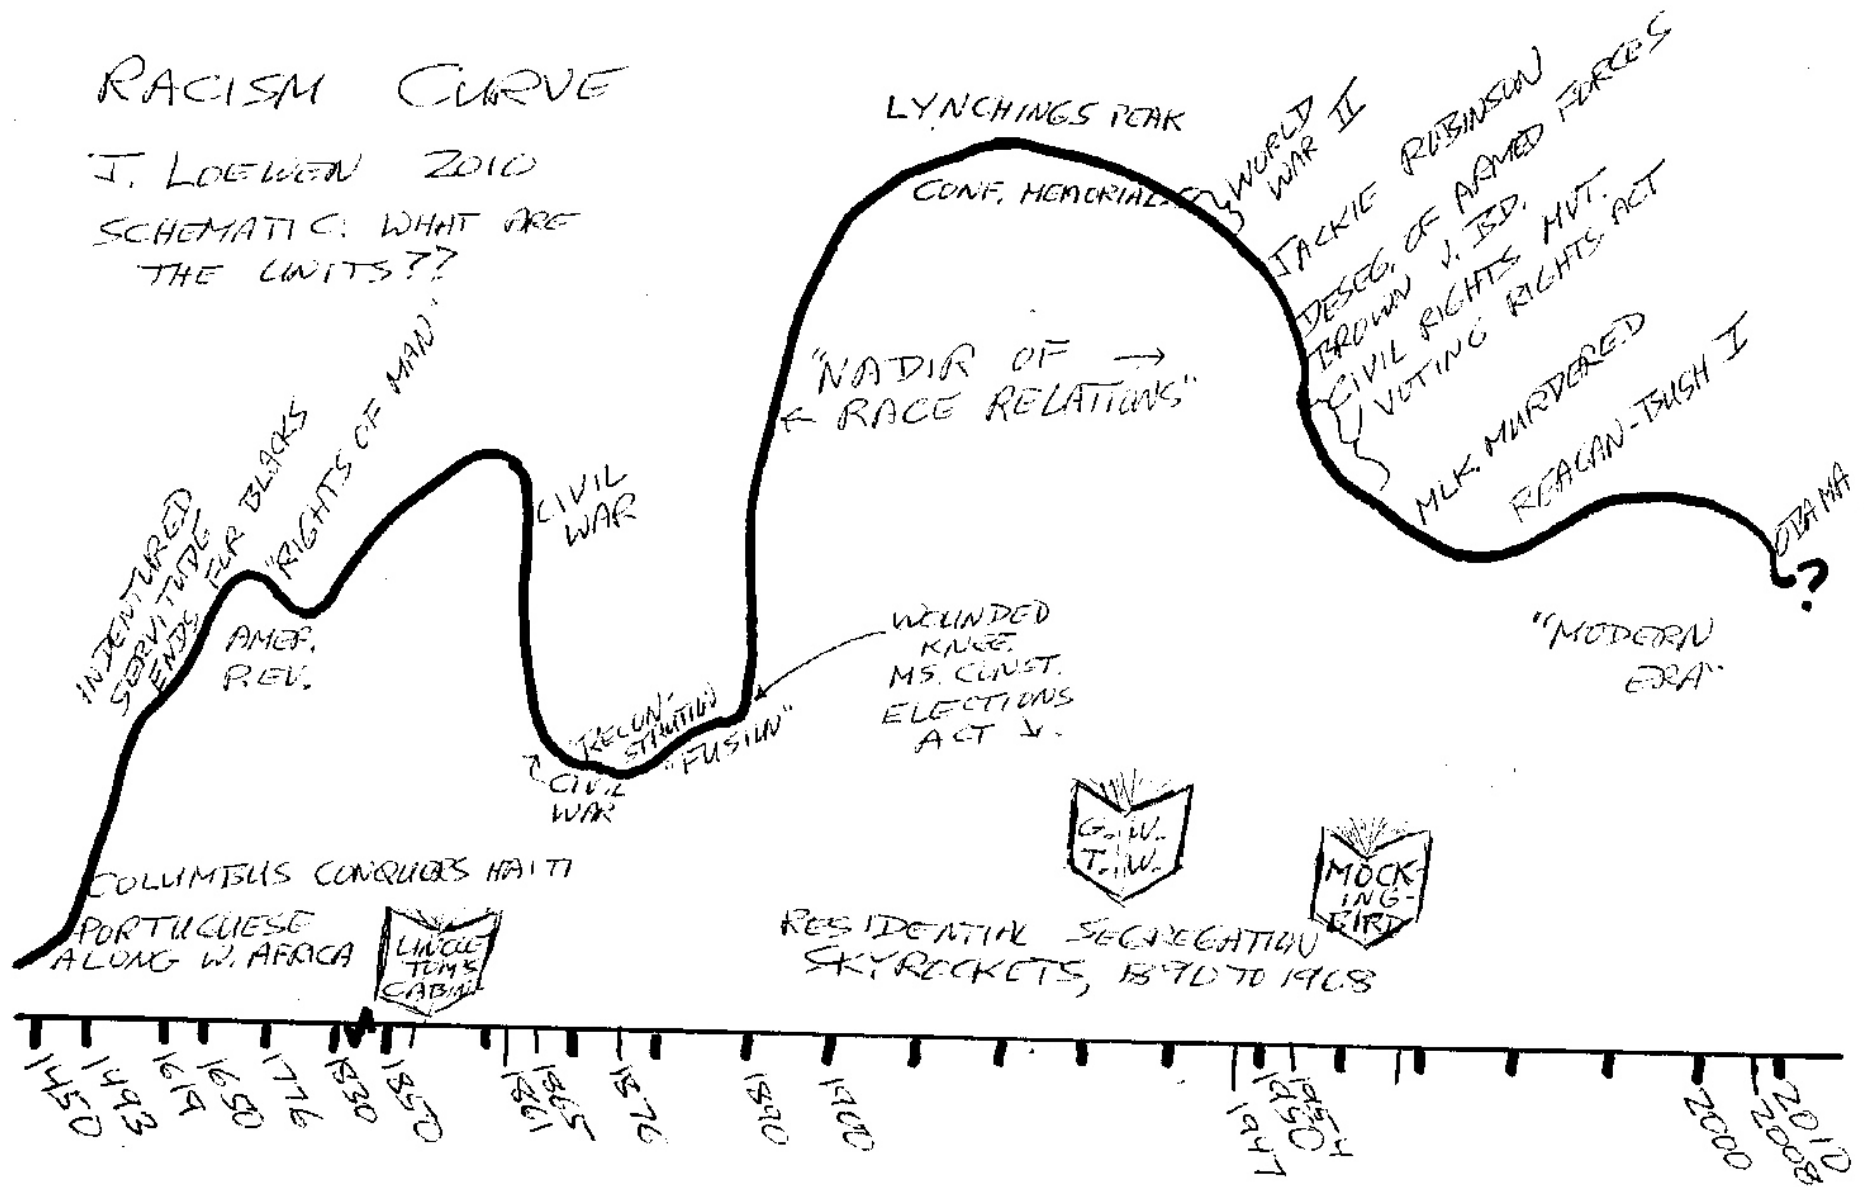 RACISM CURVE
J. LOEWEN 2010
SCHEMATIC: WHAT ARE
THE UNITS??
LYNCHINGS PEAK
CONF. MEMORIALS
WORLD
WAR II
JACKIE ROBINSON
DESEG. OF ARMED FORCES
BROWN V. BD.
CIVIL RIGHTS MVT.
VOTING RIGHTS ACT
MLK. MURDERED
REAGAN-BUSH I
OBAMA
?
"MODERN
ERA"
"NADIR OF →
← RACE RELATIONS"
INDENTURED
SERVITUDE
ENDS FOR BLACKS
"RIGHTS OF MAN"
AMER.
REV.
CIVIL
WAR
"RECON-
STRUCTION
"FUSION"
CIVIL
WAR
WOUNDED
KNEE.
MS. CONST.
ELECTIONS
ACT ↓.
COLUMBUS CONQUERS HAITI
PORTUGUESE
ALONG W. AFRICA
UNCLE
TOM'S
CABIN
G. W.
T. W.
MOCK-
ING-
BIRD
RESIDENTIAL SEGREGATION
SKYROCKETS, 1890 TO 1968
1450
1493
1619
1650
1776
1830
1850
1861
1865
1876
1890
1900
1947
1950
1954
2000
2008
2010